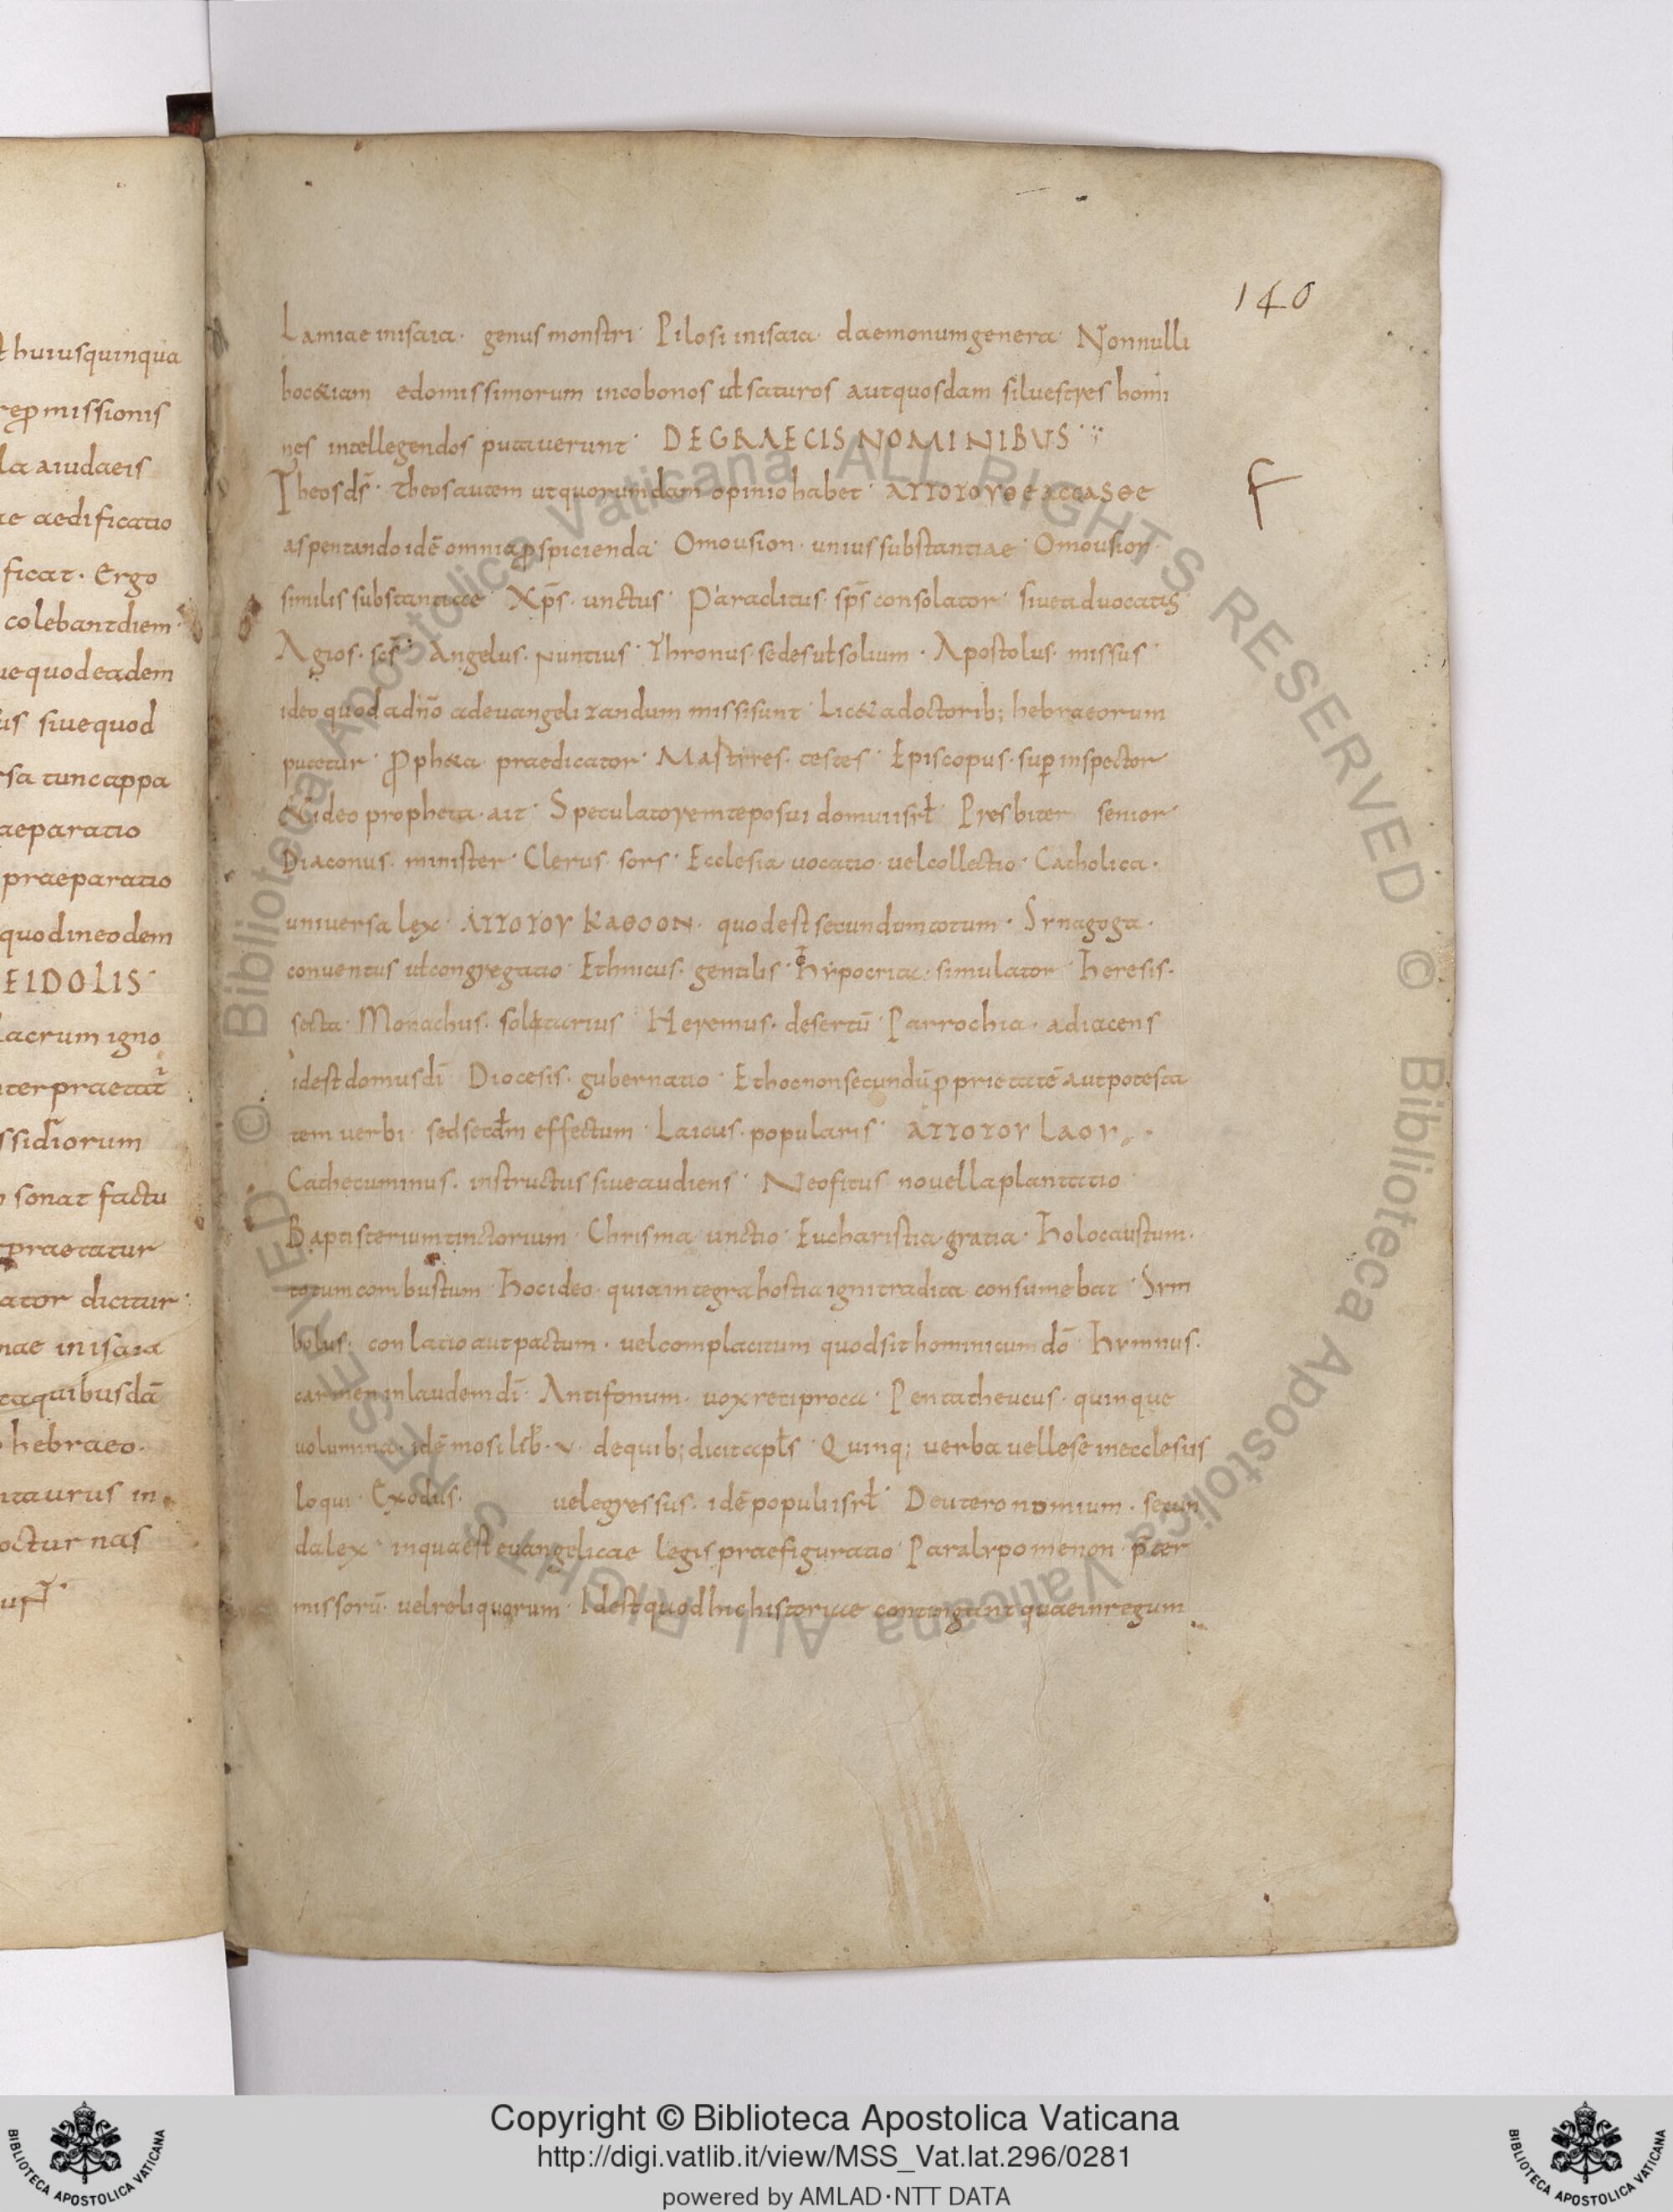 t huiusquinqua
rep̄missionis
la aiudaeis
ae aedificatio
ficat· Ergo
colebantdiem
ue quodeadem
us siuequod
rsa tuncappa
aeparatio
praeparatio
quodineodem
EIDOLIS
lacrum igno
terpraetat̄
ssidiorum
sonat factu
praetatur
ator dicitur
nae inisaia
taquibusdā
hebraeo·
ntaurus in
octurnas
140
Lamiae inisaia· genus monstri· Pilosi inisaia· daemonumgenera· Nonnulli
hoc&iam edomissimorum incobonos uł saturos autquosdam siluestres homi
nes intellegendos putauerunt· DEGRAECIS NOMINIBUS
Theos d̄s· theosautem utquorumdam opiniohabet·
aspentando idē omnia p̄spicienda· Omousion· uniussubstantiae· Omousion·
similis substantiae· Xp̄s· unctus· Paraclitus· sp̄s consolator· siueaduocatus
Agios· sc̄s· Angelus· nuntius· Thronus· sedes uł solium· Apostolus· missus·
ideo quod adn̄o adeuangelizandum missisunt· Lic& adoctorib; hebraeorum
putetur· Proph&a· praedicator· Mastires· testes· Episcopus· sup̄inspector
&ideo propheta· ait· Speculatoremteposui domuiisrł· Presbiter senior
Diaconus· minister· Clerus· sors· Ecclesia uocatio· uelcollectio· Catholica·
uniuersa lex· ΑΠΟΤΟΥ ΚΑΘΟΟΝ· quodest secundumtotum· Synagoga·
conuentus uł congregatio· Ethnicus· gentilis· Hypocrita· simulator· Heresis·
secta· Monachus· solitarius· Heremus· desertū· Parrochia· adiacens
idest domusdī Diocesis· gubernatio· Ethocnonsecundū p̄prietatē autpotesta
tem uerbi· sedsecdm̄ effectum· Laicus· popularis· ΑΠΟΤΟΥ ΛΑΟΥ·
Cathecuminus· instructus siueaudiens· Neofitus nouellaplantatio
Baptisteriumtinctorium· Chrisma unctio· Eucharistia gratia· Holocaustum·
totumcombustum· Hocideo· quiaintegrahostia ignitradita consumebat· Sym
bolus· conlatio autpactum· uelcomplacitum quodsithominicumdō· Hymnus·
carmen inlaudemdī· Antifonum· uoxreciproca· Pentatheucus· quinque
uolumina· idē mosi lib̄· v· dequib; dicitapłs· Quinq; uerba uellese inecclesiis
loqui· Exodus· uelegressus· idē populiisrł· Deuteronomium· secun
dalex· inquaest euangelicae legis praefiguratio· Paralypomenon· p̄ter
missorū· uelreliquorum· Idestquodhichistoriae contingunt quaeinregum
F
© Biblioteca Apostolica Vaticana ALL RIGHTS RESERVED © Biblioteca Apostolica Vaticana ALL RIGHTS RESERVED
BIBLIOTECA APOSTOLICA VATICANA
Copyright © Biblioteca Apostolica Vaticana
http://digi.vatlib.it/view/MSS_Vat.lat.296/0281
powered by AMLAD·NTT DATA
BIBLIOTECA APOSTOLICA VATICANA